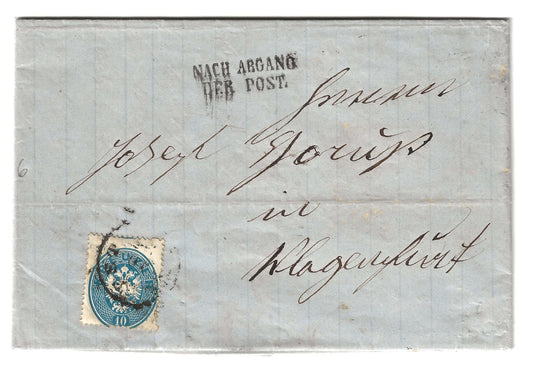 NACH ABGANG
DER POST.
Herrn
Josef Goruß
in
Klagenfurt
6
10